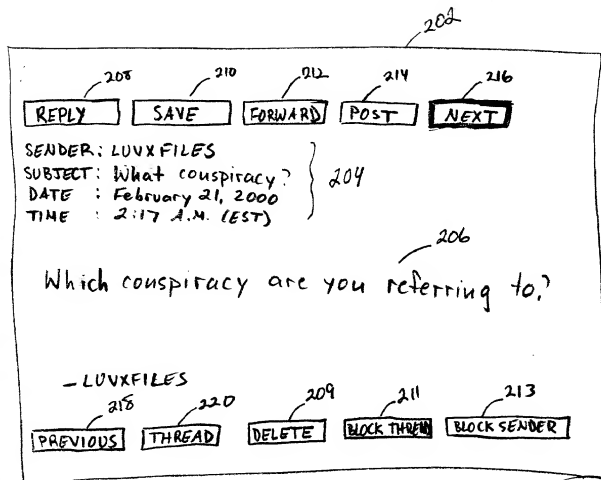 202
208 210 212 214 216
REPLY SAVE FORWARD POST NEXT
SENDER: LUVXFILES
SUBJECT: What conspiracy?
DATE : February 21, 2000
TIME : 2:17 A.M. (EST)
204
206
Which conspiracy are you referring to?
- LUVXFILES
218 220 209 211 213
PREVIOUS THREAD DELETE BLOCK THREAD BLOCK SENDER